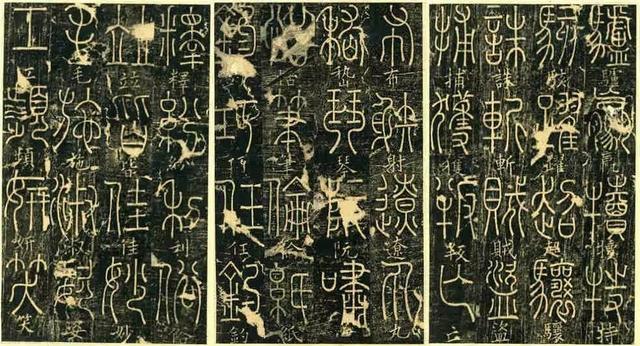 驢騾犢特
駭躍超驤
誅斬賊盜
捕獲叛亡
布射遼丸
嵇琴阮嘯
恬筆倫紙
鈞巧任釣
釋紛利俗
並皆佳妙
毛施淑姿
工頻妍笑